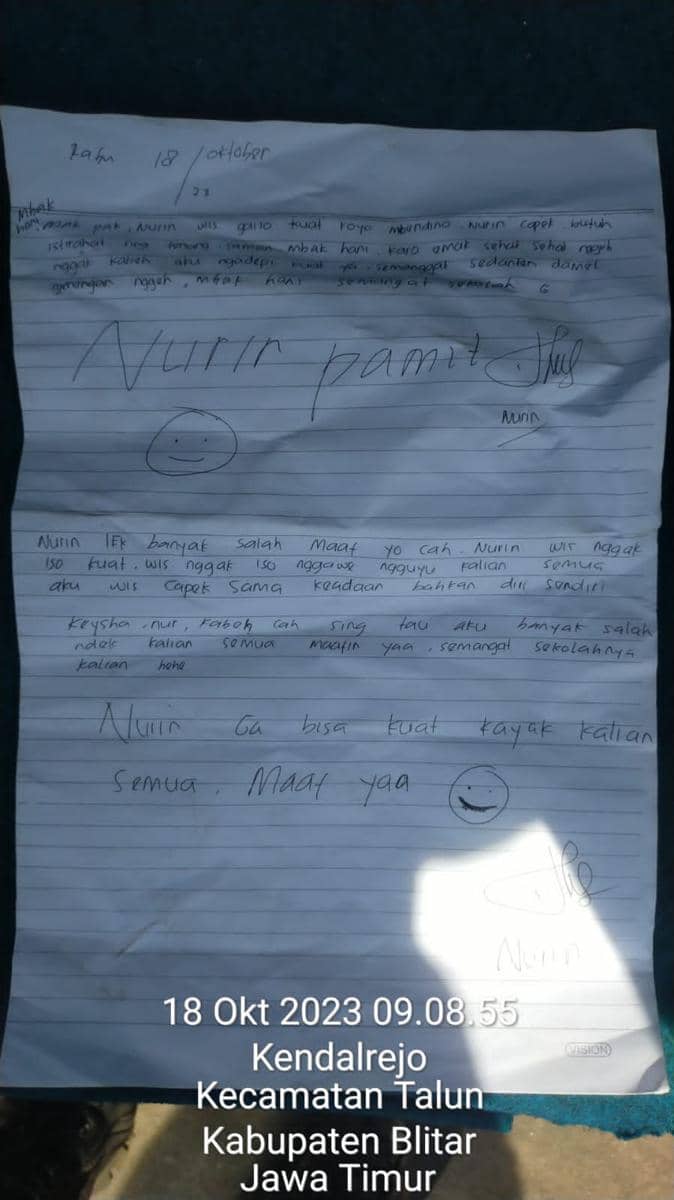 Rabu 18 / oktober
/ 23
Mbak
hani mamak pak, Nurin wis gaiso kuat koyo mbundino. Nurin capek butuh
istirahat mbak hani. karo amak sehat sehat nggeh
nggak kabeh aku ngadepi kuat ya. semanggat sedanten damel
nggeh, mbak hani semangat
Nurin pamit
Nurin
Nurin lek banyak salah Maaf yo cah. Nurin wis nggak
iso kuat. wis nggak iso nggawe ngguyu kalian semua
aku wis capek sama keadaan bahkan diri sendiri
Keysha, nur, kabeh cah sing tau aku banyak salah
ndek kalian semua maafin yaa, semangat sekolahnya
kalian hehe
Nurin Ga bisa kuat kayak kalian
semua. Maaf yaa
Nurin
VISION
18 Okt 2023 09.08.55
Kendalrejo
Kecamatan Talun
Kabupaten Blitar
Jawa Timur